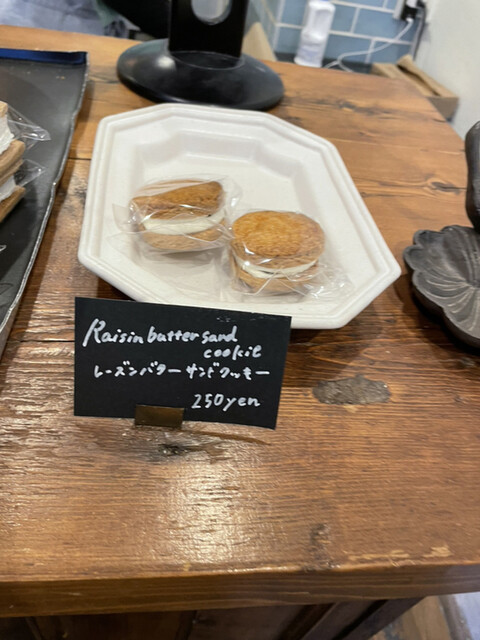 Raisin butter sand
cookie
レーズンバターサンドクッキー
250yen